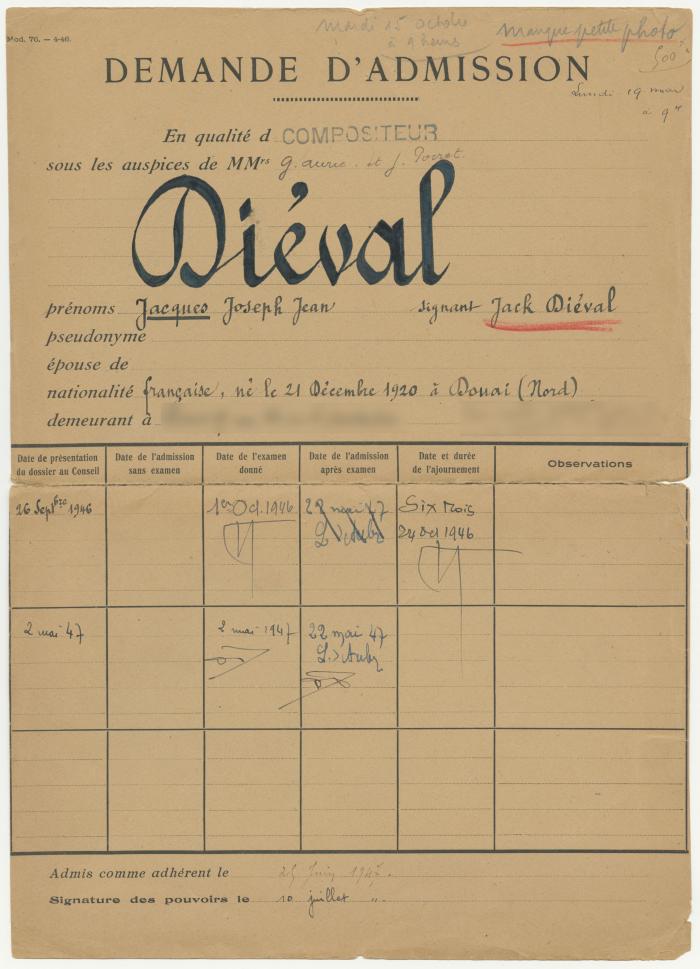 Mod. 76. — 4-46.
mardi 15 octobre
à 9 heures
manque petite photo
500
DEMANDE D'ADMISSION
Lundi 19 mai
à 9h
En qualité d COMPOSITEUR
sous les auspices de MMrs G. Auric. et J.
Diéval
prénoms Jacques Joseph Jean signant Jack Diéval
pseudonyme
épouse de
nationalité française, né le 21 Décembre 1920 à Douai (Nord)
demeurant à
Date de présentation du dossier au Conseil
Date de l'admission sans examen
Date de l'examen donné
Date de l'admission après examen
Date et durée de l'ajournement
Observations
26 Septbre 1946
1er Oct. 1946
22 mai 47
Six Mois
24 Oct 1946
2 mai 47
2 mai 1947
22 mai 47
Admis comme adhérent le 25 Juin 1947.
Signature des pouvoirs le 10 juillet "